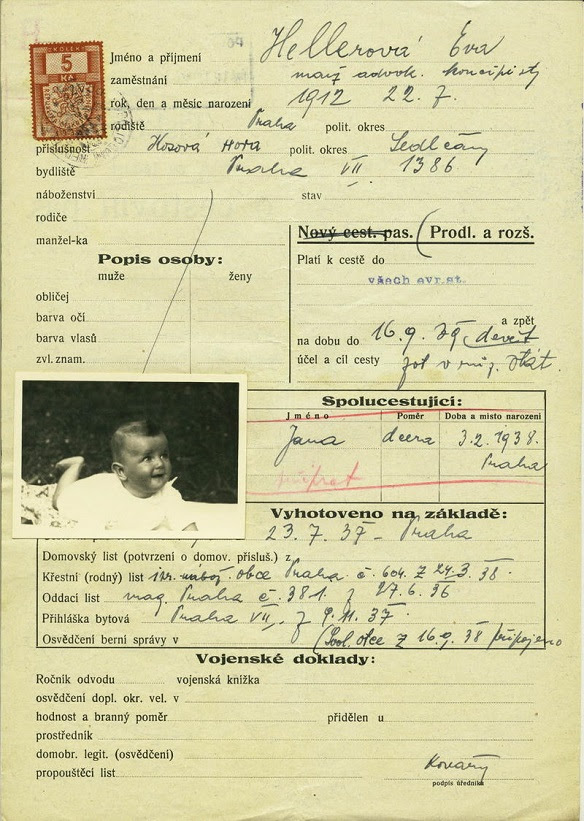 KOLEK
5
Kč
Jméno a příjmení Hellerová Eva
zaměstnání manž. advok. koncipisty
rok, den a měsíc narození 1912 22. 7.
rodiště Praha polit. okres
příslušnost Kosová Hora polit. okres Sedlčany
bydliště Praha VII 1386
náboženství stav
rodiče
manžel-ka
Nový cest. pas. Prodl. a rozš.
Popis osoby:
muže ženy
obličej
barva očí
barva vlasů
zvl. znam.
Platí k cestě do
všech evr.st.
a zpět
na dobu do 16. 9. 39
účel a cíl cesty
Spolucestující:
Jméno Poměr Doba a místo narození
Jana dcera 3. 2. 1938.
Praha
připsat
Vyhotoveno na základě:
23. 7. 37 - Praha
Domovský list (potvrzení o domov. přísluš.) z
Křestní (rodný) list izr. nábož. obce Praha č. 604. z 24.3. 38.
Oddací list mag. Praha č. 381. z 27. 6. 36
Přihláška bytová Praha VII. z 9. 11. 37.
Osvědčení berní správy v
otce z 16. 9. 38 připojeno
Vojenské doklady:
Ročník odvodu vojenská knížka
osvědčení dopl. okr. vel. v
hodnost a branný poměr přidělen u
prostředník
domobr. legit. (osvědčení)
propouštěcí list
podpis úředníka